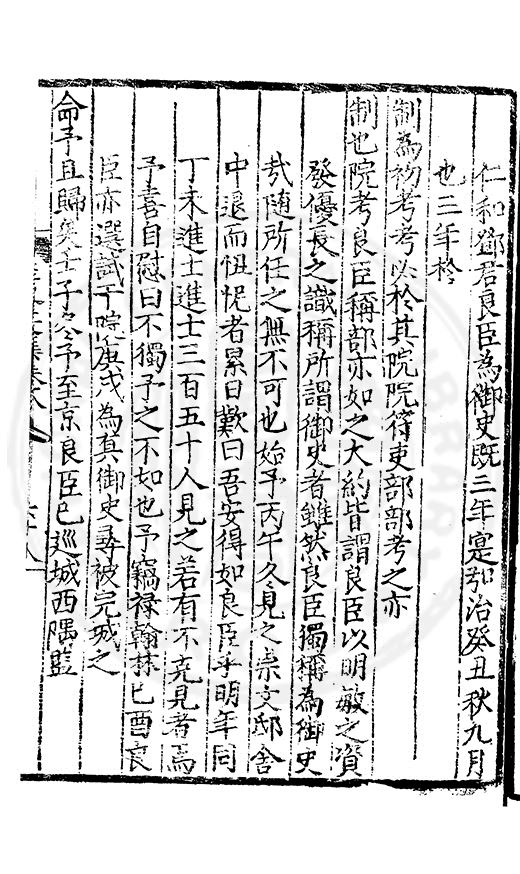 仁和鄧君良臣為御史既三年寔弘治癸丑秋九月
也三年於
制為初考考必於其院院符吏部部考之亦
制也院考良臣稱部亦如之大約皆謂良臣以明敏之資
發優長之識稱所謂御史者雖然良臣獨稱為御史
㢤随所任之無不可也始予丙午冬見之崇文邸舍
中退而忸怩者累日歎曰吾安得如良臣乎明年同
丁未進士進士三百五十人見之若有不竞見者焉
予喜自慰曰不獨予之不如也予竊禄翰林已酉良
臣亦選試于院庚戌為真御史尋被完城之
命予且歸矣壬子冬予至京良臣已廵城西隅監